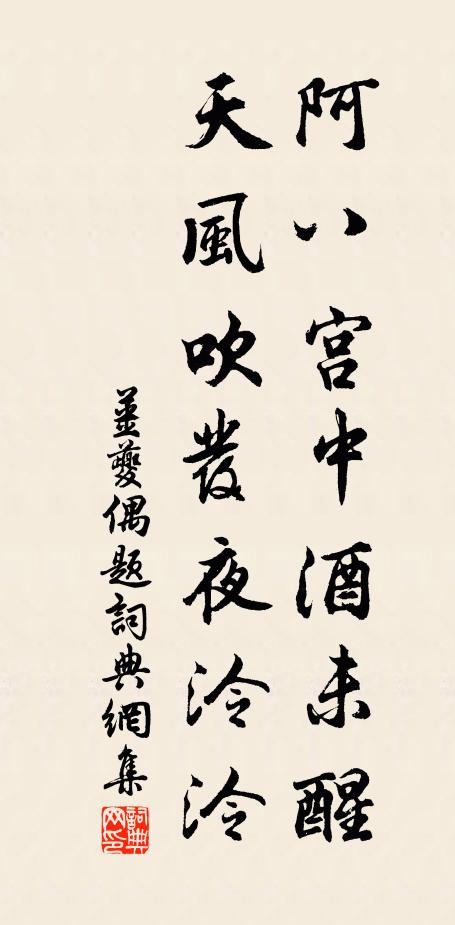 阿八宫中酒未醒
天風吹發夜泠泠
姜夔偶題詞典網集
詞典網印